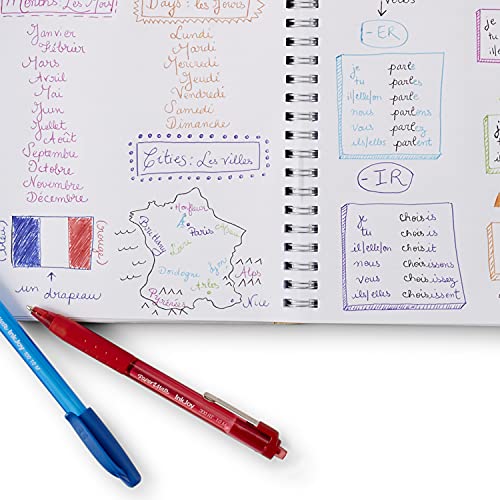 Months: Les Mois
Janvier
Février
Mars
Avril
Mai
Juin
Juillet
Août
Septembre
Octobre
Novembre
Décembre
Days: les Jours
Lundi
Mardi
Mercredi
Jeudi
Vendredi
Samedi
Dimanche
Cities: Les villes
(bleu)
(rouge)
un drapeau
Honfleur
Paris
Loire
Dordogne
Lyon
Alps
Arles
Pyrénées
Nice
-ER
je parle
tu parles
il/elle/on parle
nous parlons
vous parlez
ils/elles parlent
-IR
je choisis
tu choisis
il/elle/on choisit
nous choisissons
vous choisissez
ils/elles choisissent
Paper Mate InkJoy
InkJoy 100 1.0 M